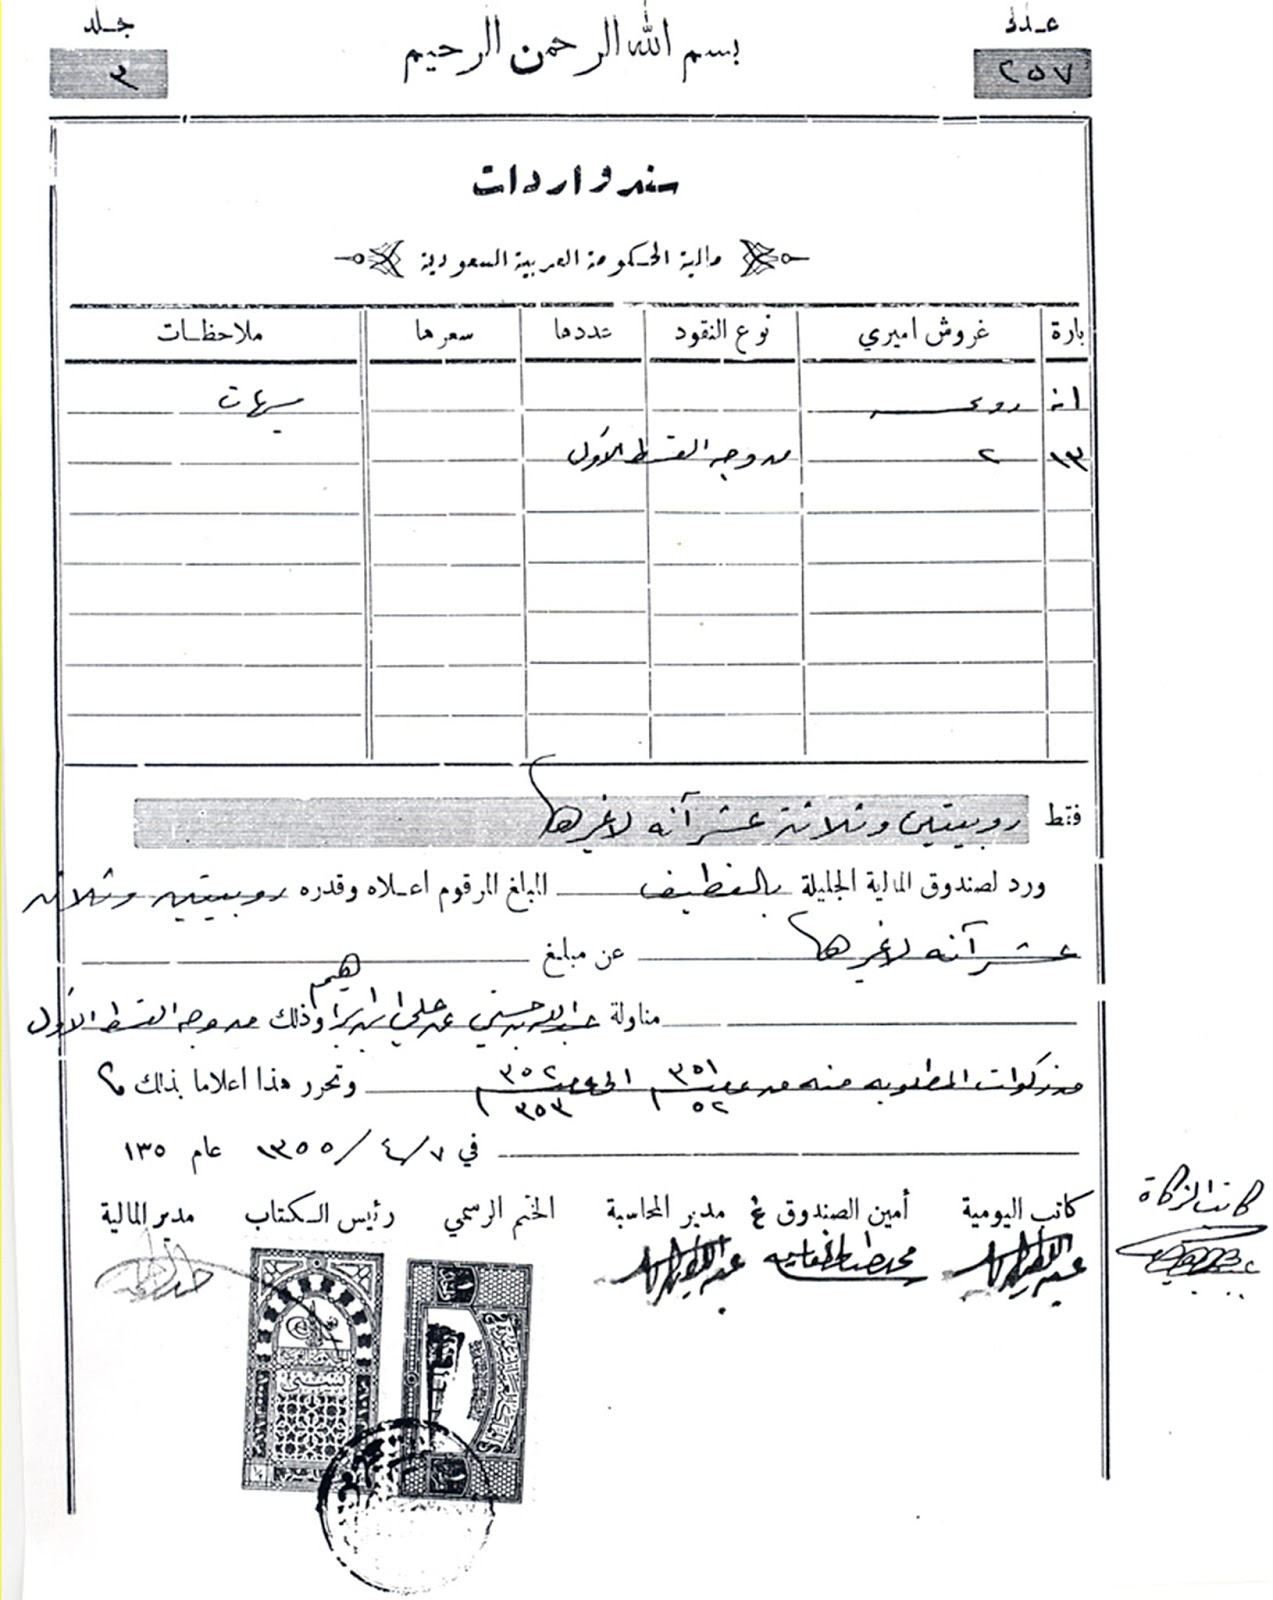 عـدد
٢٥٧
بسم الله الرحمن الرحيم
جـلد
٣
سند واردات
مالية الحكومة العربية السعودية
بارة غروش اميري نوع النقود عددها سعرها ملاحظات
انه روبية سيهات
١٣ ٢ من وجه القسط الأول
فقط روبيتين وثلاثة عشر آنه لا غيرها
ورد لصندوق المالية الجليلة بالقطيف المبلغ المرقوم اعلاه وقدره روبيتين وثلاثة
عشر آنه لا غيرها عن مبلغ
مناولة عبدالله بن حسني عن علي ابراهيم وذلك من وجه القسط الأول
من زكوات المطلوبه منه من ٣٥١ ٥٢ الى ٣٥٢ ٣٥٣ وتحرر هذا اعلاما بذلك
في ٧/٤/١٣٥٥ عام ١٣٥
كاتب اليومية أمين الصندوق مدير المحاسبة الختم الرسمي رئيس الكتاب مدير المالية
كاتب الزكاة